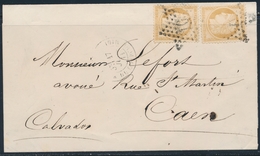 Monsieur Lefort
avoué Rue St Martin
Caen
Calvados